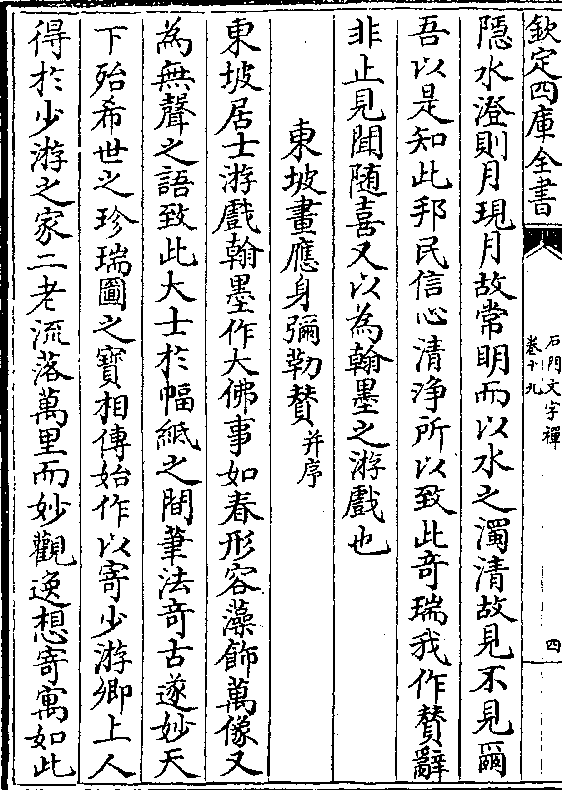 欽定四庫全書
石門文字禪
卷十九
四
隱水澄則月現月故常明而以水之濁清故見不見爾
吾以是知此邦民信心清淨所以致此奇瑞我作贊辭
非止見聞随喜又以為翰墨之游戲也
東坡畫應身彌勒贊并序
東坡居士游戲翰墨作大佛事如春形容藻飾萬像又
為無聲之語致此大士於幅紙之間筆法奇古遂妙天
下殆希世之珍瑞圖之寶相傳始作以寄少游卿上人
得於少游之家二老流落萬里而妙觀逸想寄寓如此